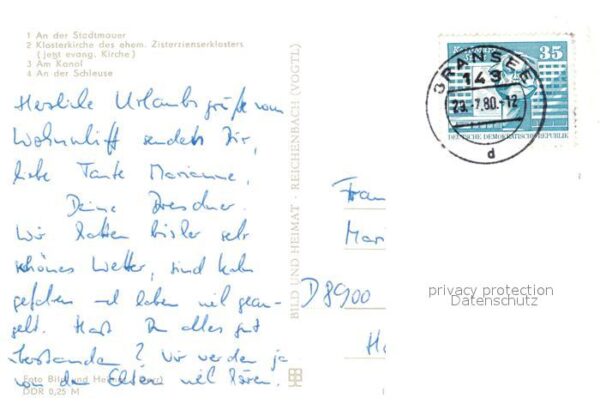 1 An der Stadtmauer
2 Klosterkirche des ehem. Zisterzienserklosters
( jetzt evang. Kirche)
3 Am Kanal
4 An der Schleuse
Herzliche Urlaubsgrüße vom
Wohnschiff senden Dir,
liebe Tante Marianne,
Deine Dresdner.
Wir hatten bisher sehr
schönes Wetter, sind Kahn
gefahren und haben viel gean-
gelt. Hast Du alles gut
überstanden? Wir werden ja
von den Eltern viel hören.
Foto Bild und Heimat
DDR 0,25 M
BILD UND HEIMAT · REICHENBACH (VOGTL)
35
DEUTSCHE DEMOKRATISCHE REPUBLIK
GRANSEE
143
23.-7.80.-12
d
Frau
Mari
D 8900
privacy protection
Datenschutz